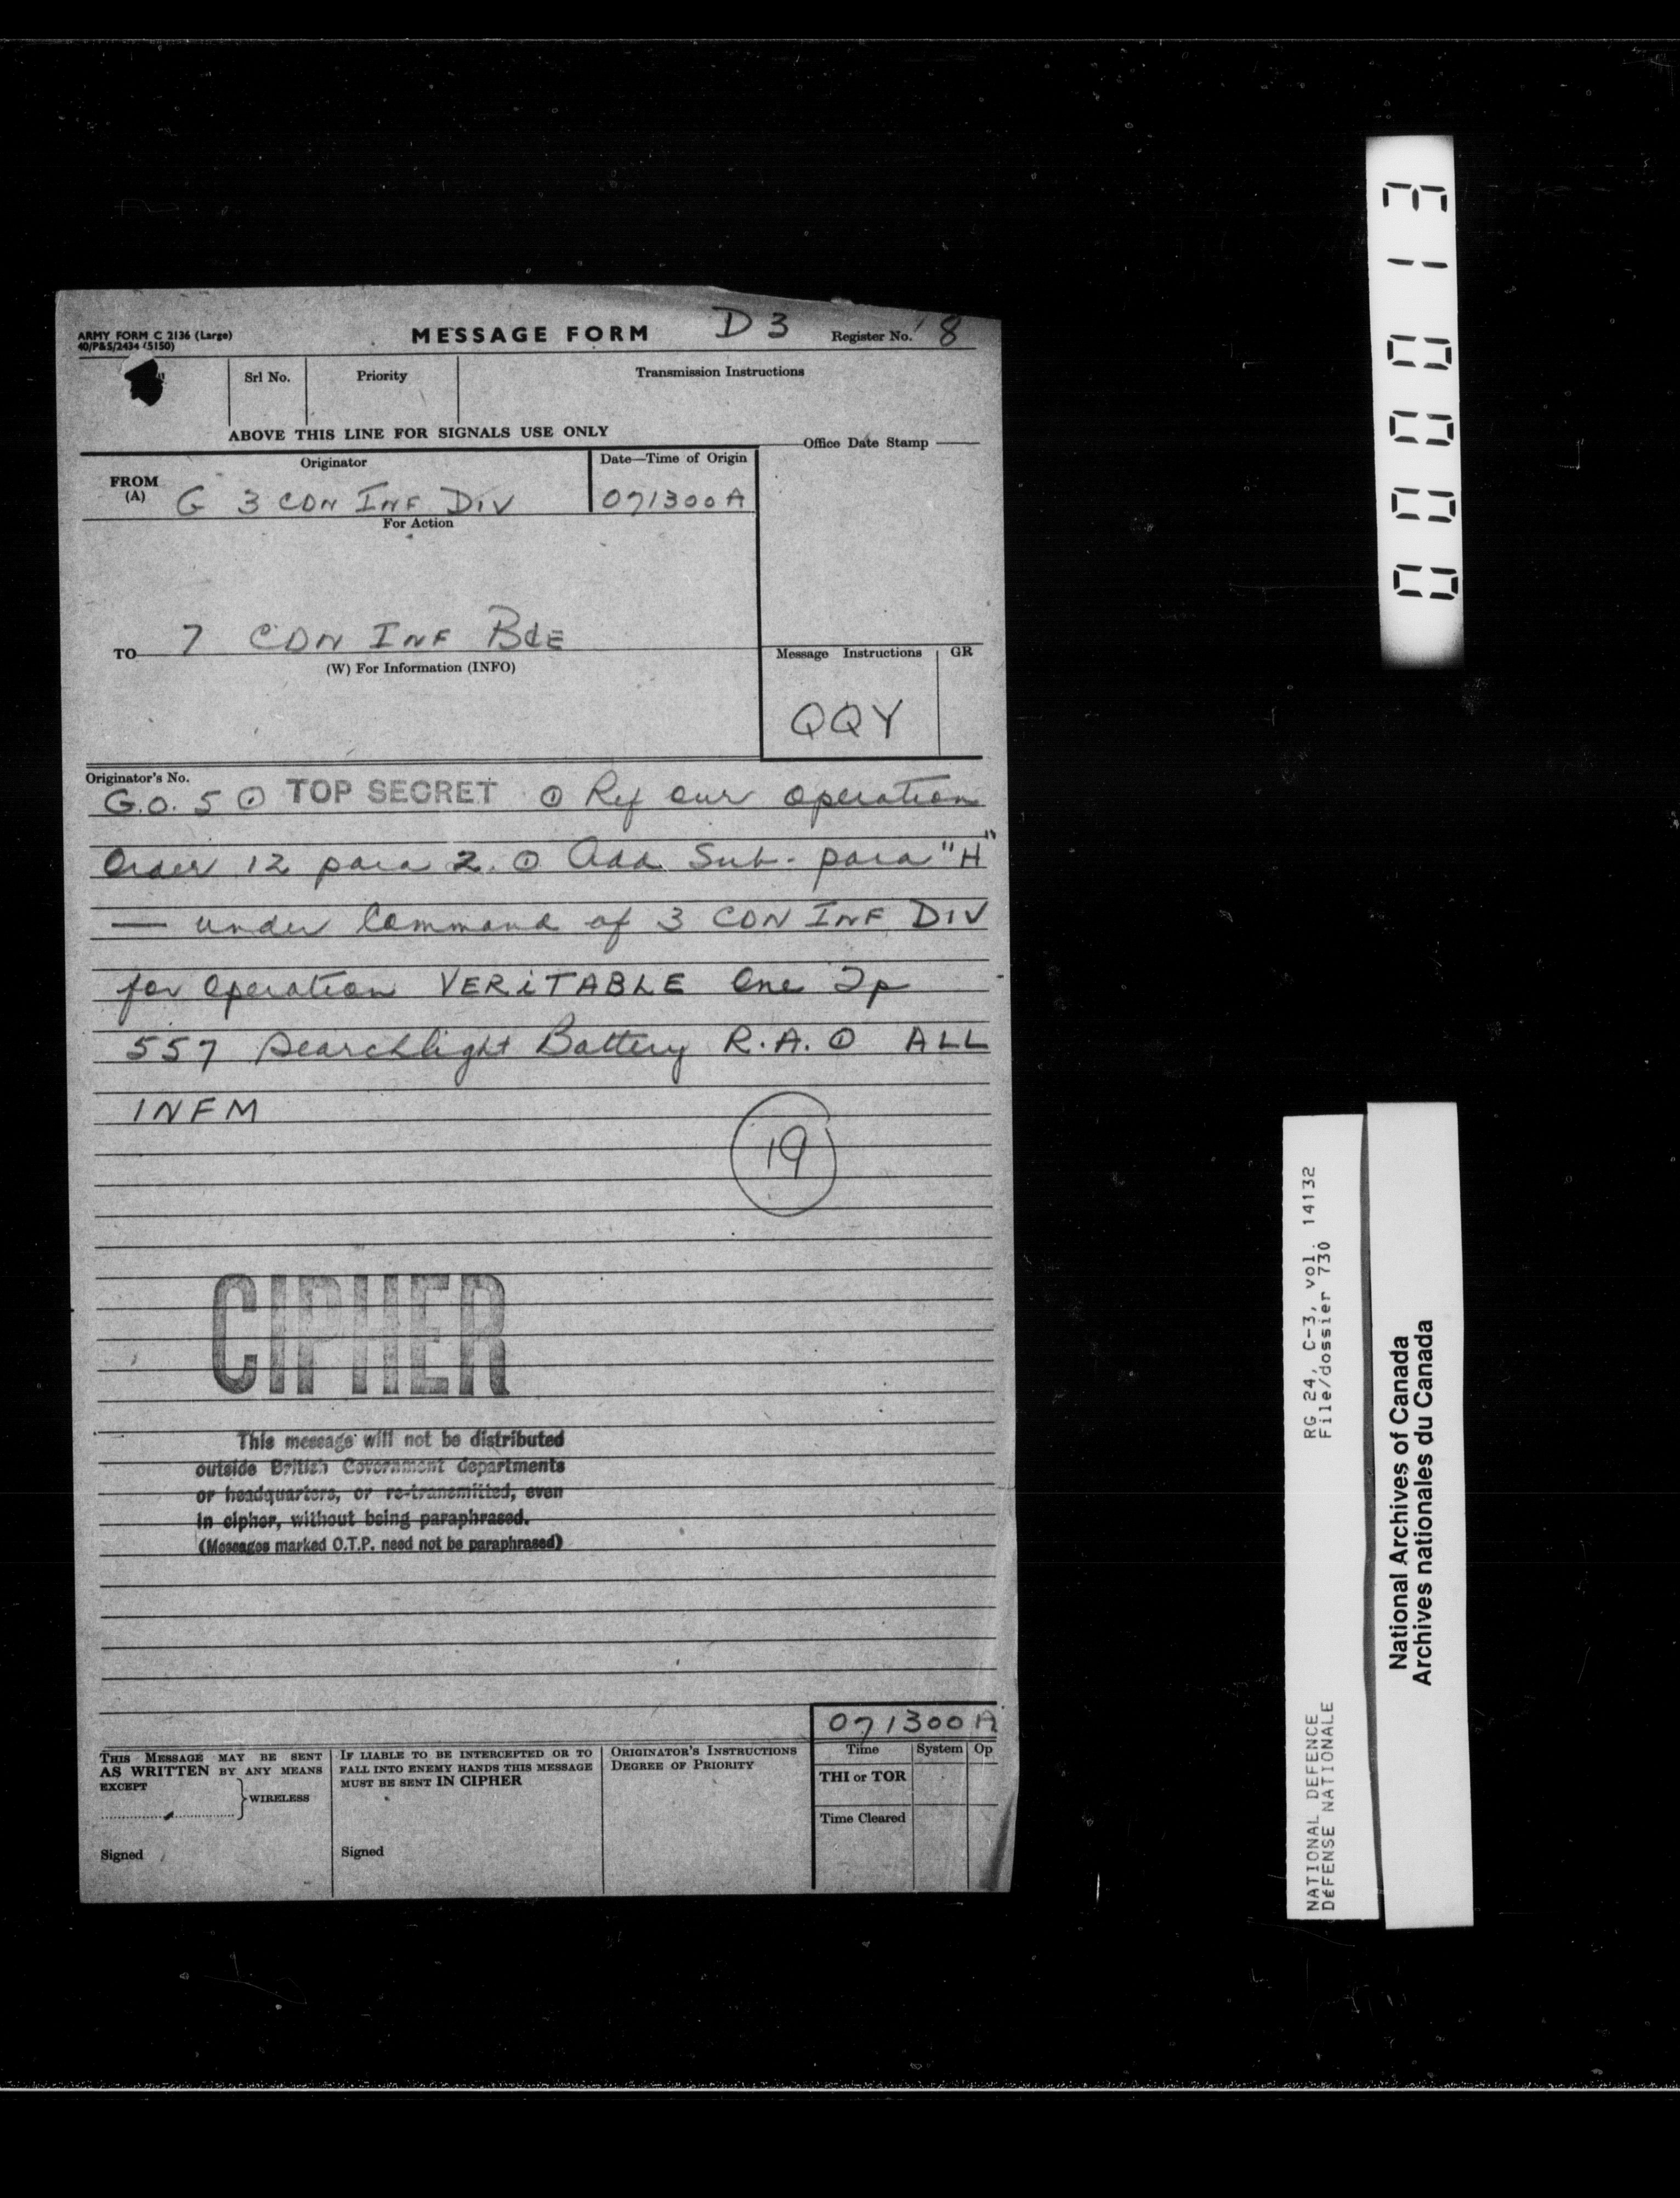 ARMY FORM C 2136 (Large)
40/P&S/2434 (5150)
MESSAGE FORM
D 3
Register No. 8
Srl No.
Priority
Transmission Instructions
ABOVE THIS LINE FOR SIGNALS USE ONLY
Office Date Stamp
Originator
Date—Time of Origin
FROM
(A)
G 3 CDN INF DIV
071300A
For Action
TO 7 CDN INF BdE
(W) For Information (INFO)
Message Instructions
GR
QQY
Originator's No.
G.O. 5 ⊙ TOP SECRET ⊙ Ref our operation
Order 12 para 2. ⊙ Add Sub-para "H"
— under Command of 3 CDN INF DIV
for Operation VERiTABLE One Tp
557 Searchlight Battery R.A. ⊙ ALL
INFM
19
CIPHER
This message will not be distributed
outside British Government departments
or headquarters, or re-transmitted, even
in cipher, without being paraphrased.
(Messages marked O.T.P. need not be paraphrased)
071300A
THIS MESSAGE MAY BE SENT
AS WRITTEN BY ANY MEANS
EXCEPT
WIRELESS
Signed
IF LIABLE TO BE INTERCEPTED OR TO
FALL INTO ENEMY HANDS THIS MESSAGE
MUST BE SENT IN CIPHER
Signed
ORIGINATOR'S INSTRUCTIONS
DEGREE OF PRIORITY
Time
System
Op
THI or TOR
Time Cleared
000013
RG 24, C-3, vol. 14132
File/dossier 730
NATIONAL DEFENCE
DéFENSE NATIONALE
National Archives of Canada
Archives nationales du Canada